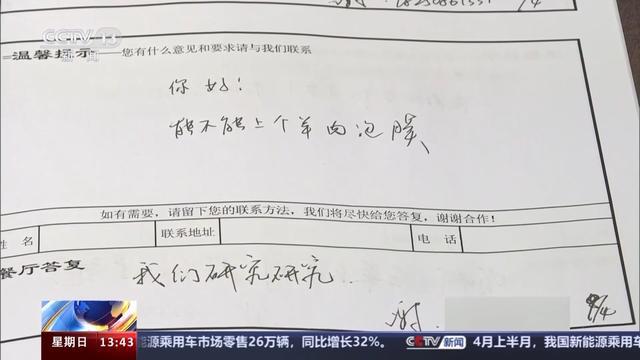 CCTV 13
新闻
温馨提示
您有什么意见和要求请与我们联系
你好！
能不能上个羊肉泡膜
如有需要，请留下您的联系方法，我们将尽快给您答复，谢谢合作！
姓 名
联系地址
电 话
餐厅答复
我们研究研究..
谢
星期日 13:43
能源乘用车市场零售26万辆，同比增长32%。
CCTV 新闻
4月上半月，我国新能源乘用车